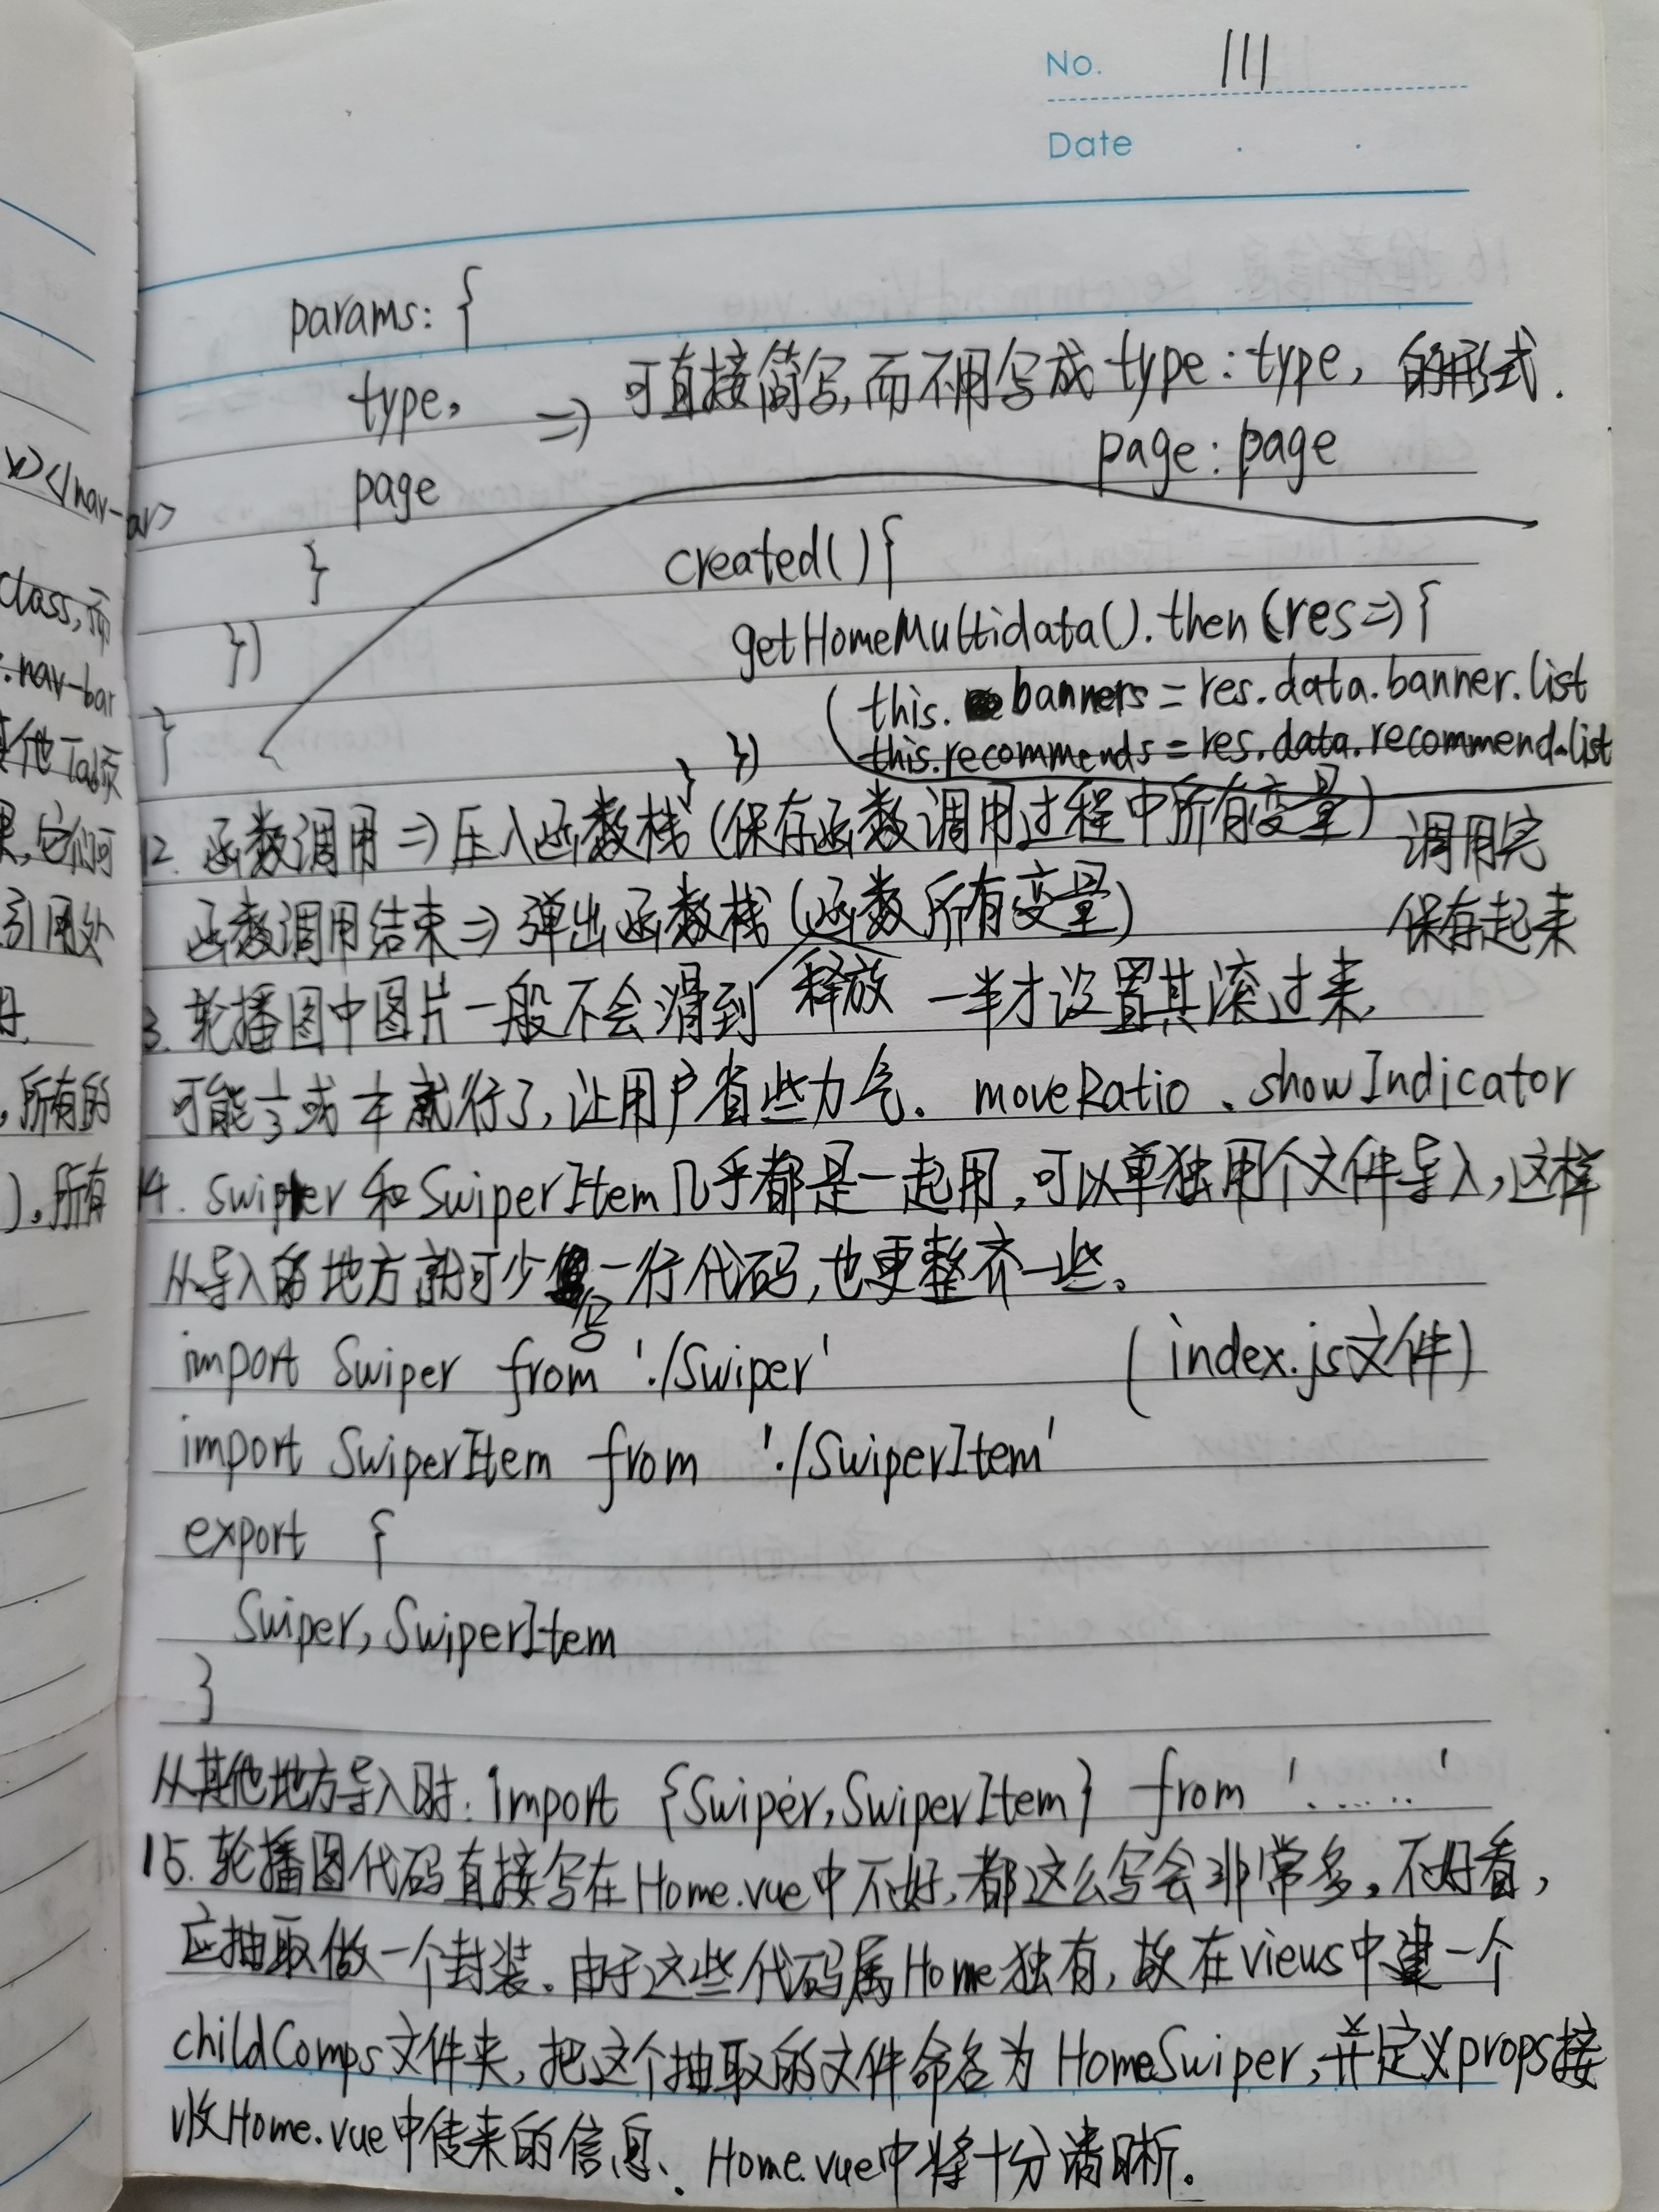 No. 111
Date
params: {
type, => 可直接简写,而不用写成 type: type, 的形式.
page page: page
} created(){
}) getHomeMultidata().then(res=>{
this. banners = res.data.banner.list
} this.recommends = res.data.recommend.list
} })
12. 函数调用 => 压入函数栈(保存函数调用过程中所有变量) 调用完
函数调用结束 => 弹出函数栈(函数所有变量) 保存起来
释放
3. 轮播图中图片一般不会滑到一半才设置其滚过来,
可能 1/3 或 就行了,让用户省些力气. moveRatio、showIndicator
14. Swiper 和 SwiperItem 几乎都是一起用,可以单独用个文件导入,这样
从导入的地方就可少写一行代码,也更整齐一些。
import Swiper from './Swiper' (index.js文件)
import SwiperItem from './SwiperItem'
export {
Swiper, SwiperItem
}
从其他地方导入时: import {Swiper, SwiperItem} from '......'
15. 轮播图代码直接写在Home.vue中不好,都这么写会非常多。不好看,
应抽取做一个封装。由于这些代码属Home独有,故在views中建一个
childComps文件夹,把这个抽取的文件命名为HomeSwiper,并定义props接
收Home.vue中传来的信息、. Home.vue中将十分清晰。